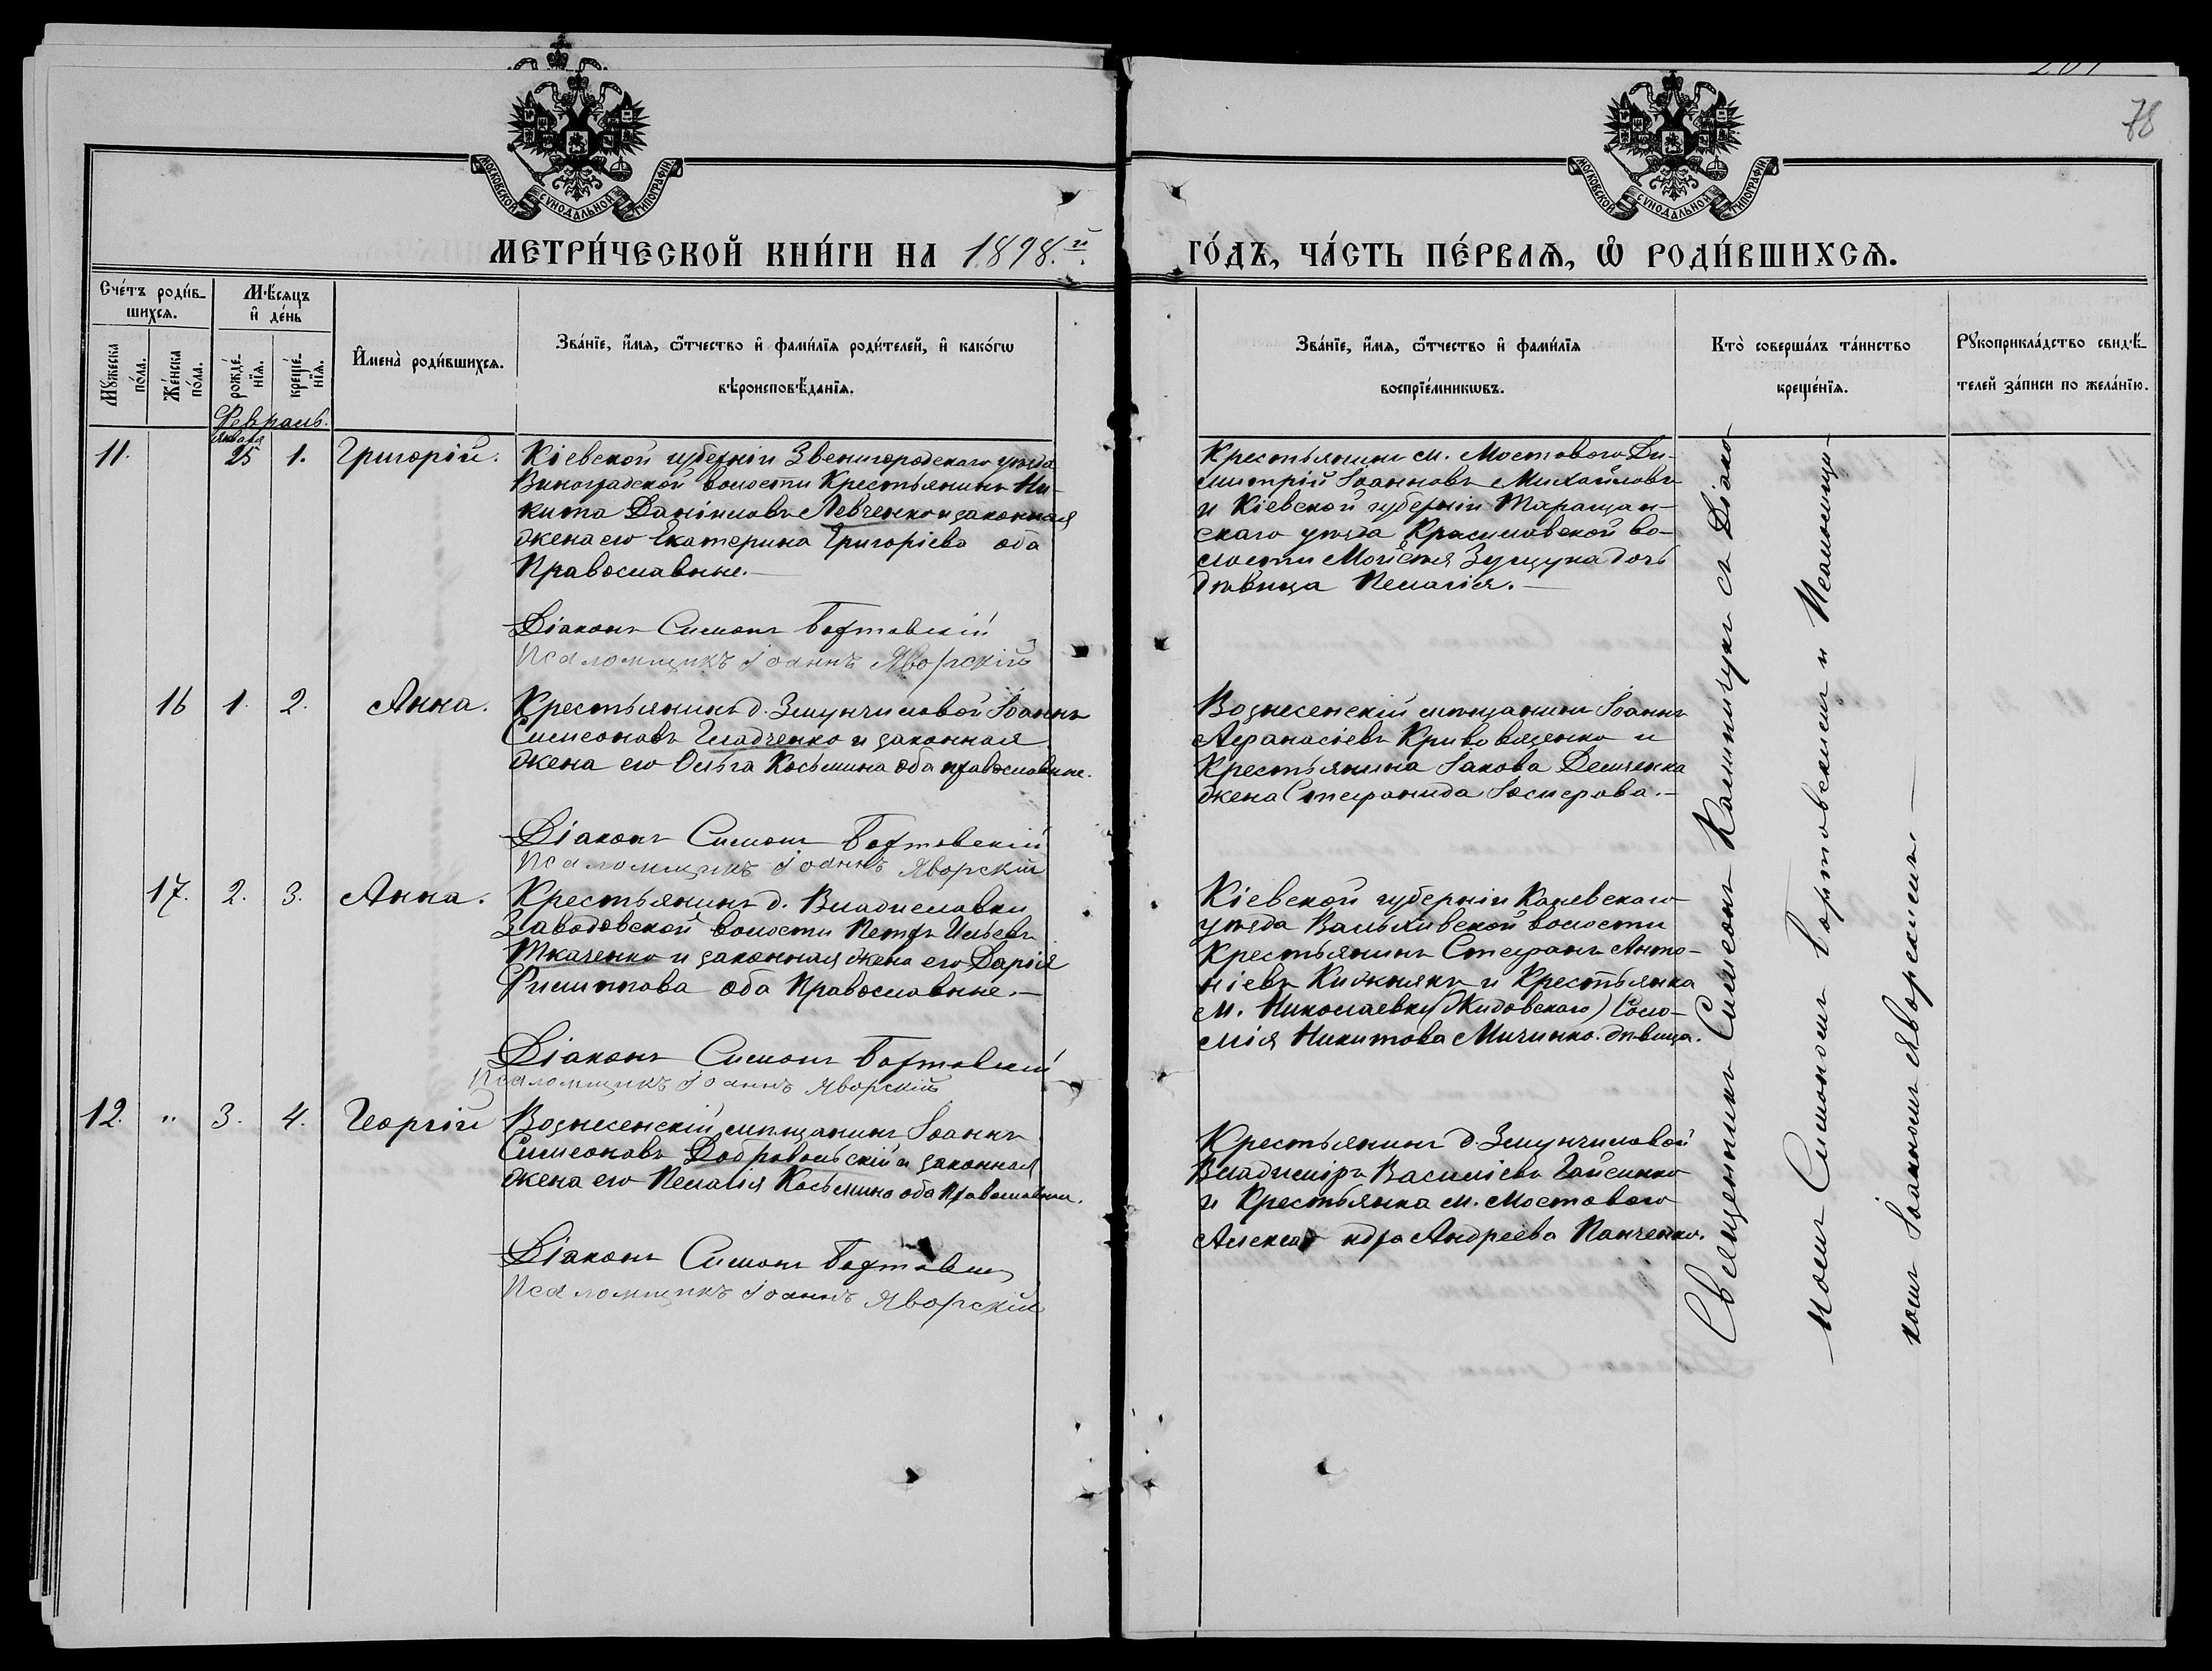 78
МОСКОВСКОЙ СѴНОДАЛЬНОЙ ТИПОГРАФІИ
МОСКОВСКОЙ СѴНОДАЛЬНОЙ ТИПОГРАФІИ
МЕТРИ́ЧЕСКОЙ КНИ́ГИ НА 1898.й ГО́ДЪ, ЧА́СТЬ ПЕ́РВАѦ, Ѡ҆ РОДИ́ВШИХСѦ.
Сче́тъ роди́в-
шихсѧ.
Мꙋ́жеска
по́ла.
Же́нска
по́ла.
Мѣ́сяцъ
и҆ де́нь
рожде́-
нїѧ.
креще́-
нїѧ.
И҆мена̀ роди́вшихсѧ.
Зва́нїе, и҆́мѧ, ѻ҆́тчество и҆ фами́лїѧ роди́телей, и҆ како́гѡ
вѣроисповѣ́данїѧ.
Зва́нїе, и҆́мѧ, ѻ҆́тчество и҆ фами́лїѧ
воспрїе́мникѡвъ.
Кто̀ соверша́лъ та́инство
креще́нїѧ.
Рꙋкоприкла́дство свидѣ́-
телей за́писи по жела́нїю.
Февраль.
Января
11. 25 1. Григорій.
Кіевской губерніи Звенигородскаго уѣзда
Виноградской волости Крестьянинъ Ни-
кита Даніиловъ Левченко и законная
жена его Екатерина Григоріева оба
Православные.—
Діаконъ Симонъ Бортовскій
Псаломщикъ Іоаннъ Яворскій
Крестьянинъ м. Мостового Ди-
митрій Іоанновъ Михайловъ
и Кіевской губерніи Таращан-
скаго уѣзда Красиловской во-
лости Мойсея Зущука дочь
дѣвица Пелагія.—
16 1. 2. Анна.
Крестьянинъ д. Змунчиловой Іоаннъ
Симеоновъ Гладченко и законная
жена его Ольга Косьмина оба православные.
Діаконъ Симонъ Бортовскій
Псаломщикъ Іоаннъ Яворскій
Вознесенскій мѣщанинъ Іоаннъ
Афанасіевъ Кривовященко и
Крестьянина Іакова Демченка
жена Стефанида Іосифова.—
17. 2. 3. Анна.
Крестьянинъ д. Владиславки
Заводовской волости Петръ Ильевъ
Ткаченко и законная жена его Дарія
Филиппова оба Православные.—
Діаконъ Симонъ Бортовскій
Псаломщикъ Іоаннъ Яворскій
Кіевской губерніи Каневскаго
уѣзда Вальхивской волости
Крестьянинъ Стефанъ Анто-
ніевъ Кижнякъ и Крестьянка
м. Николаевки (Жидовскаго) Соло-
мія Никитова Миченко. дѣвица.
12. " 3. 4. Георгій
Вознесенскій мѣщанинъ Іоаннъ
Симеоновъ Добровольскій и законная
жена его Пелагія Косьмина оба Православные.
Діаконъ Симонъ Бортовскій
Псаломщикъ Іоаннъ Яворскій
Крестьянинъ д. Змунчиловой
Владиміръ Василіевъ Гайсенко
и Крестьянка м. Мостового
Александра Андреева Панченко.
Священникъ Симеонъ Калиничукъ съ Діако-
номъ Симономъ Бортовскимъ и Псаломщи-
комъ Іоанномъ Яворскимъ—